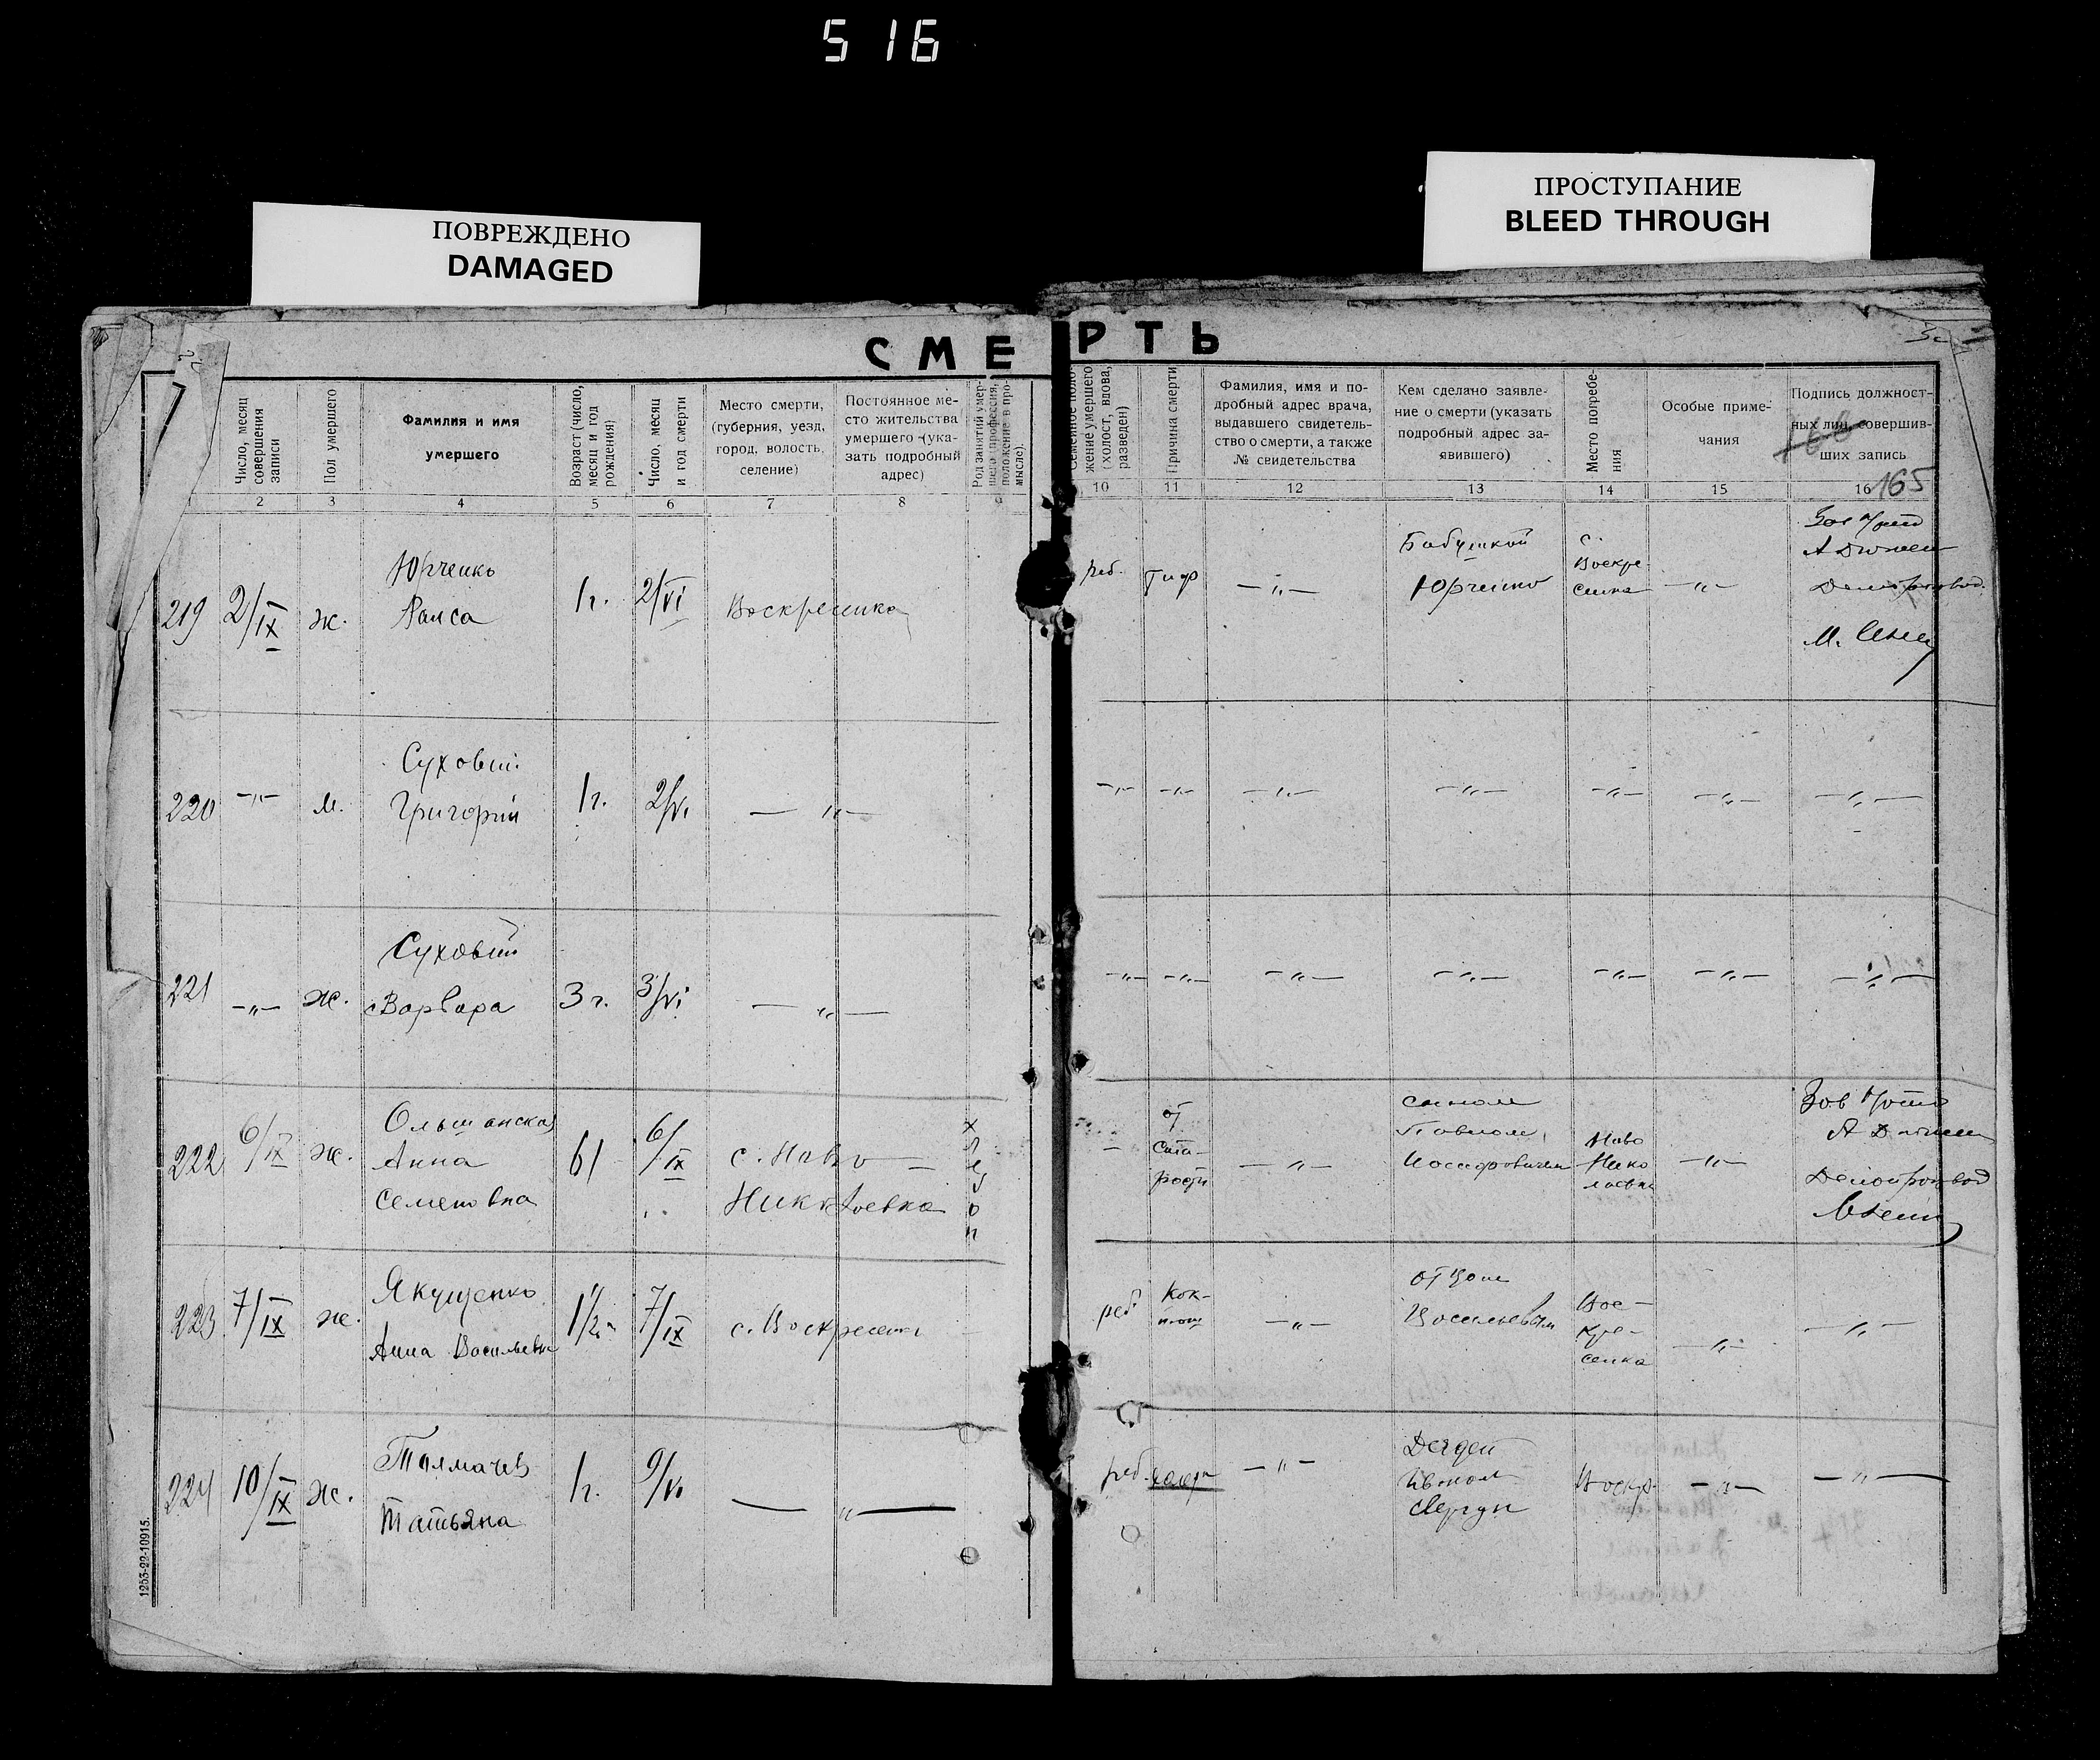 516
ПОВРЕЖДЕНО
DAMAGED
ПРОСТУПАНИЕ
BLEED THROUGH
СМЕРТЬ
Число, месяц совершения записи
Пол умершего
Фамилия и имя
умершего
Возраст (число, месяц и год рождения)
Число, месяц и год смерти
Место смерти,
(губерния, уезд,
город, волость,
селение)
Постоянное ме-
сто жительства
умершего (ука-
зать подробный
адрес)
Род занятий умер-
шего, профессия,
положение в про-
мысле).
Семейное поло-
жение умершего
(холост, вдова,
разведен)
Причина смерти
Фамилия, имя и по-
дробный адрес врача,
выдавшего свидетель-
ство о смерти, а также
№ свидетельства
Кем сделано заявле-
ние о смерти (указать
подробный адрес за-
явившего)
Место погребе-
ния
Особые приме-
чания
Подпись должност-
ных лиц, совершив-
ших запись
1 2 3 4 5 6 7 8 9 10 11 12 13 14 15 16
165
219 2/IX ж.
Юрченко
Раиса
1г. 2/VI
Воскресенка
реб. Тиф —„—
Бабушкой
Юрченко
с.
Воскре
сенка
—„—
220 —„— м.
Суховий
Григорий
1г. 2/VI —„—
—„— —„— —„— —„— —„— —„— —„—
221 —„— ж.
Суховий
Варвара
3 г. 3/VI —„—
—„— —„— —„— —„— —„— —„— —„—
222 6/IX ж.
Ольшанская
Анна
Семеновна
61 6/IX
с. Ново —
Николаевка
—
от
Ста-
рости
—„—
сыном
Павлом
Иосифовичем
Ново
Нико
лаевка
—„—
223 7/IX ж.
Якущенко
Анна Васильевна
1½г 7/IX
с. Воскресенка
реб
Кок-
люш
—„—
отцом
Васильевым
Вос-
кре-
сенка
—„— —„—
224 10/IX ж.
Толмачев
Татьяна
1г. 9/VI —„—
реб. —„—
Дядей
Иваном
Воскр. —„— —„—
1253-22-10915.